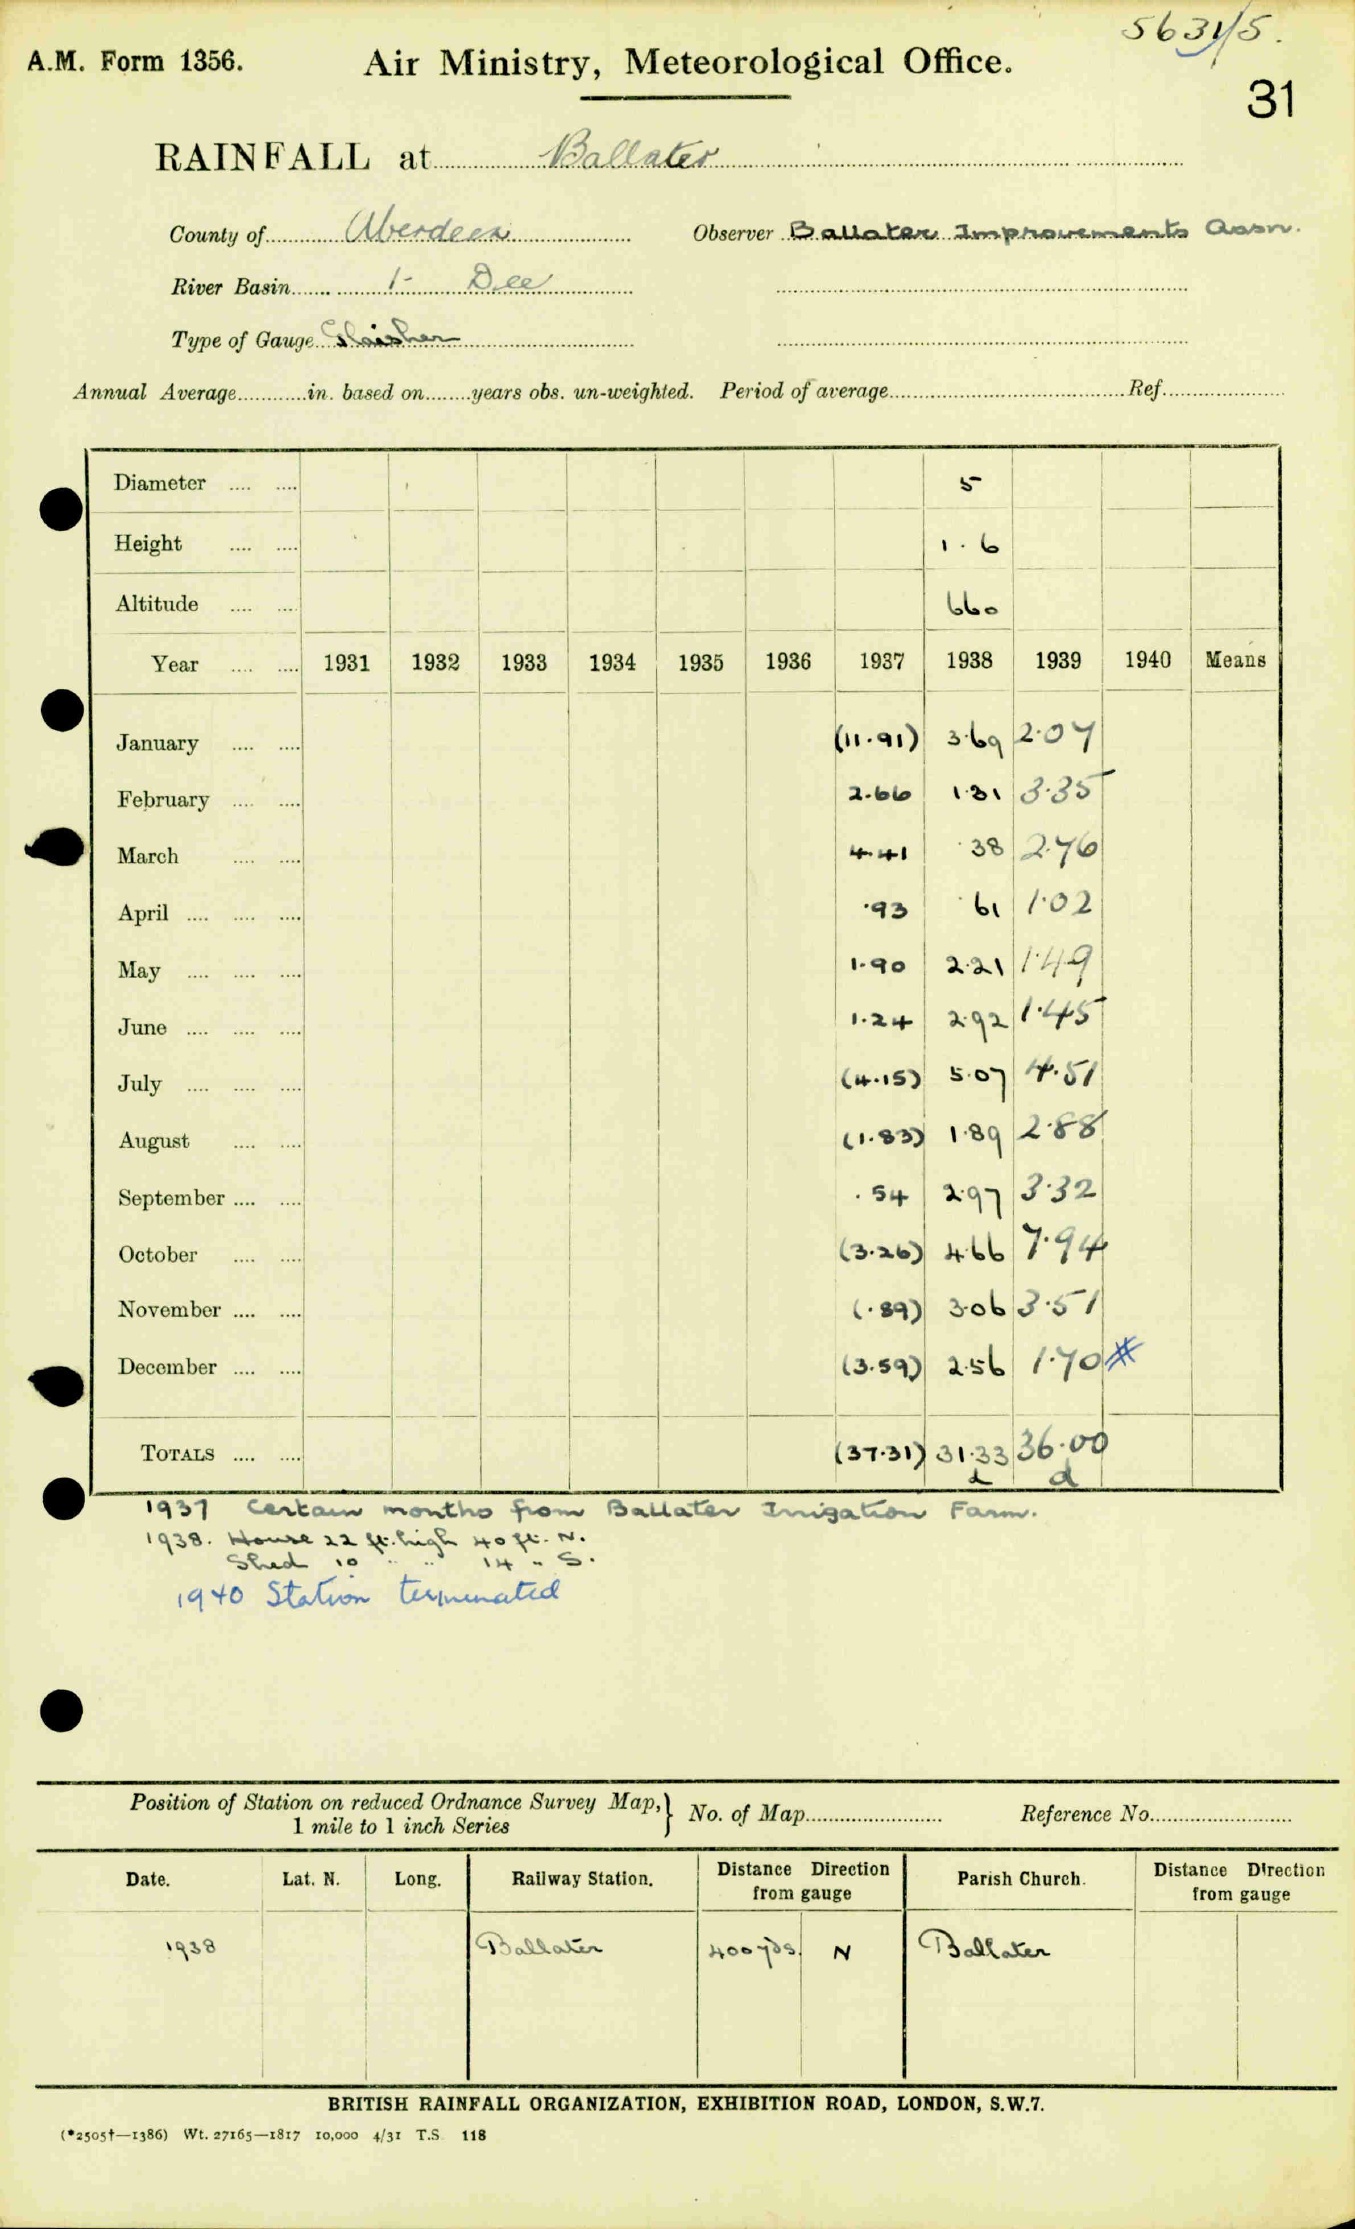 5631/5.
A.M. Form 1356. Air Ministry, Meteorological Office.
31
RAINFALL at Ballater
County of Aberdeen Observer Ballater Improvements Assn.
River Basin 1- Dee
Type of Gauge Glaisher
Annual Average in. based on years obs. un-weighted. Period of average Ref.
Diameter 5
Height 1.6
Altitude 660
Year 1931 1932 1933 1934 1935 1936 1937 1938 1939 1940 Means
January (11.91) 3.69 2.07
February 2.66 1.31 3.35
March 4.41 .38 2.76
April .93 .61 1.02
May 1.90 2.21 1.49
June 1.24 2.92 1.45
July (4.15) 5.07 4.51
August (1.83) 1.89 2.88
September .54 2.97 3.32
October (3.26) 4.66 7.94
November (.89) 3.06 3.51
December (3.59) 2.56 1.70 #
TOTALS (37.31) 31.33 36.00
d d
1937 Certain months from Ballater Irrigation Farm.
1938. House 22 ft. high 40 ft. N.
Shed 10 " " 14 " S.
1940 Station terminated
Position of Station on reduced Ordnance Survey Map, } No. of Map Reference No.
1 mile to 1 inch Series
Date. Lat. N. Long. Railway Station. Distance Direction from gauge Parish Church. Distance Direction from gauge
1938 Ballater 400 yds. N Ballater
BRITISH RAINFALL ORGANIZATION, EXHIBITION ROAD, LONDON, S.W.7.
(*2505†—1386) Wt. 27165—1817 10,000 4/31 T.S. 118